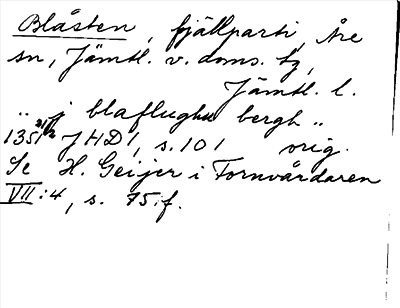 Blåsten, fjällparti, Åre
sn, Jämtl. v. doms. tg,
Jämtl. l.
"j blaflughu bergh"
1351 21/2 JHD1, s. 101 orig.
Se H. Geijer i Fornvårdaren
VII:4, s. 75 f.